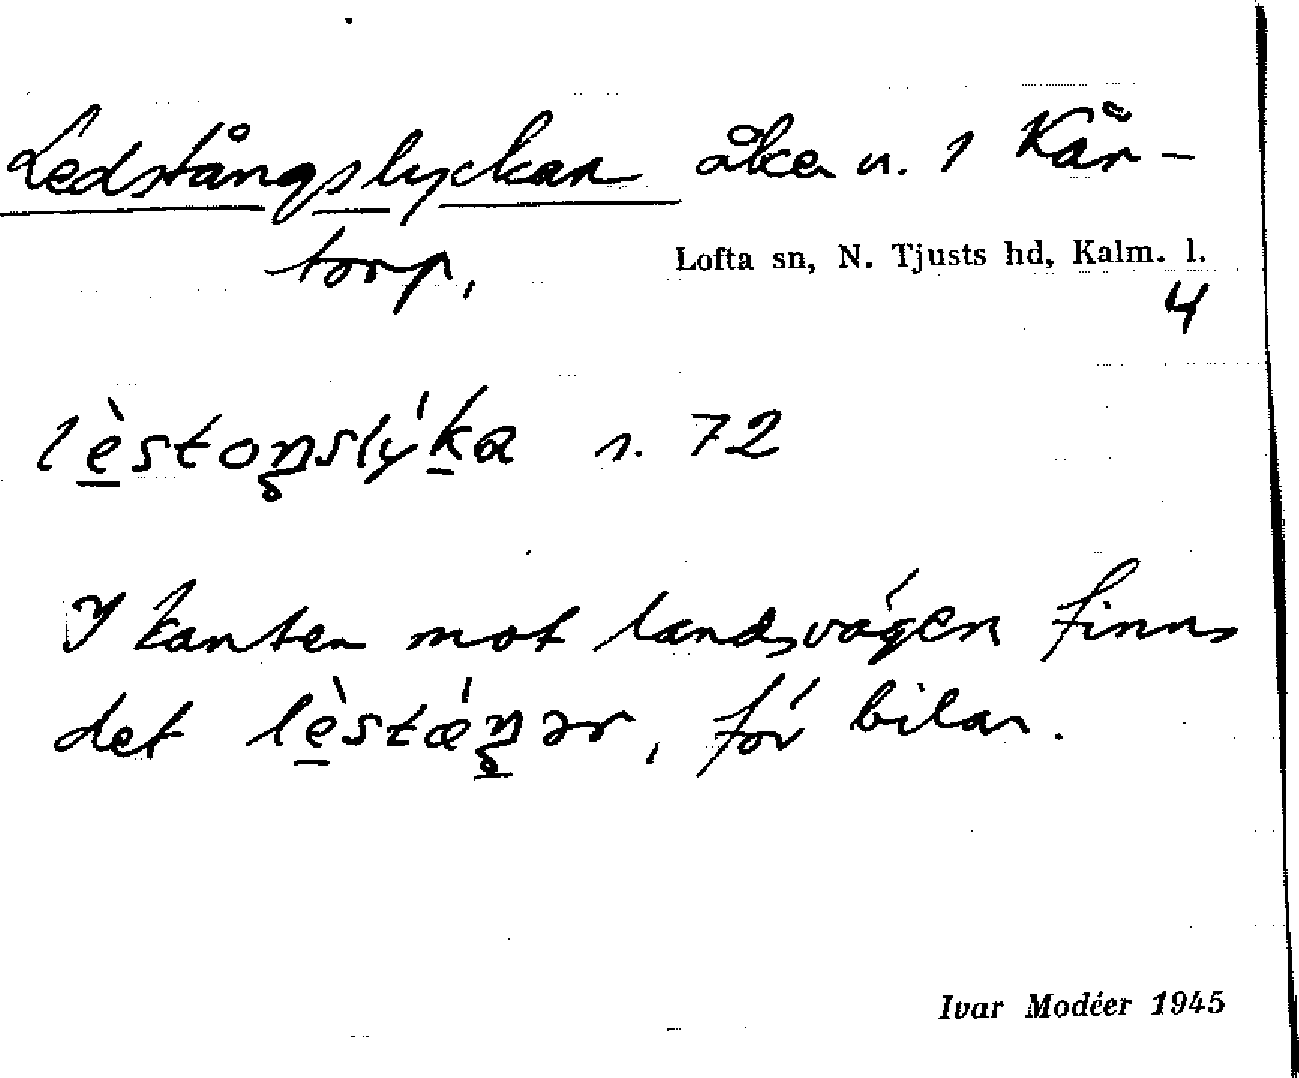 Ledstångslyckan åker n. 1 Kär-
torp,
Lofta sn, N. Tjusts hd, Kalm. l.
4
lèstoŋslýka n. 72
I kanten mot landsvägen finns
det lèstǽŋər, för bilar.
Ivar Modéer 1945